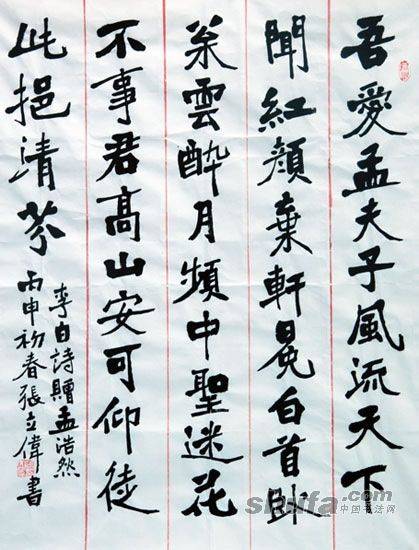 吾愛孟夫子風流天下
聞紅顏棄軒冕白首卧
枀雲醉月頻中聖迷花
不事君高山安可仰徒
此挹清芬
李白詩贈孟浩然
丙申初春張立偉書
shufa.com
中国书法网